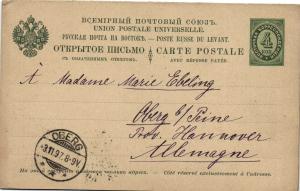 ВСЕМІРНЫЙ ПОЧТОВЫЙ СОЮЗЪ.
UNION POSTALE UNIVERSELLE.
РУССКАЯ ПОЧТА НА ВОСТОКѢ. — POSTE RUSSE DU LEVANT.
ОТКРЫТОЕ ПИСЬМО CARTE POSTALE
СЪ ОПЛАЧЕННЫМЪ ОТВѢТОМЪ. AVEC RÉPONSE PAYÉE.
4
À Madame Marie Ebeling
Oberg b/Peine
Prov. Hannover
Allemagne
OBERG
3.11.97. 8-9V.
réservé exclusivement à l'adresse.